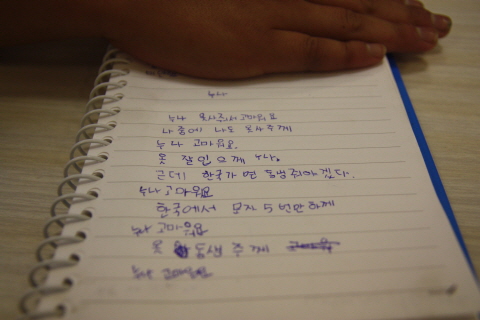 누나
누나 옷사줘서고마워요
나중에 나도 옷사주께
누나 고마워요.
옷 잘입으께 누나.
근데 한국가면 동생줘야겠다.
누나고마워요
한국에서 문자 5번만하께
누나 고마워요
옷 동생 주께
누나